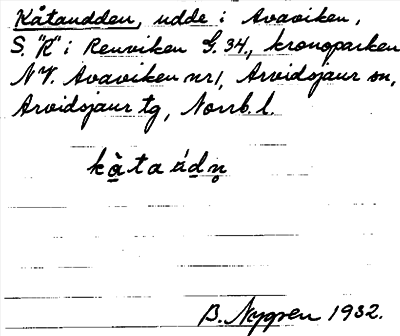 Kåtaudden, udde i Avaviken,
S. "R" i Renviken G. 34, kronoparken
NV. Avaviken nr 1, Arvidsjaur sn,
Arvidsjaur tg, Norrb. l.
kå̀ta údn̥
B. Nygren 1932.